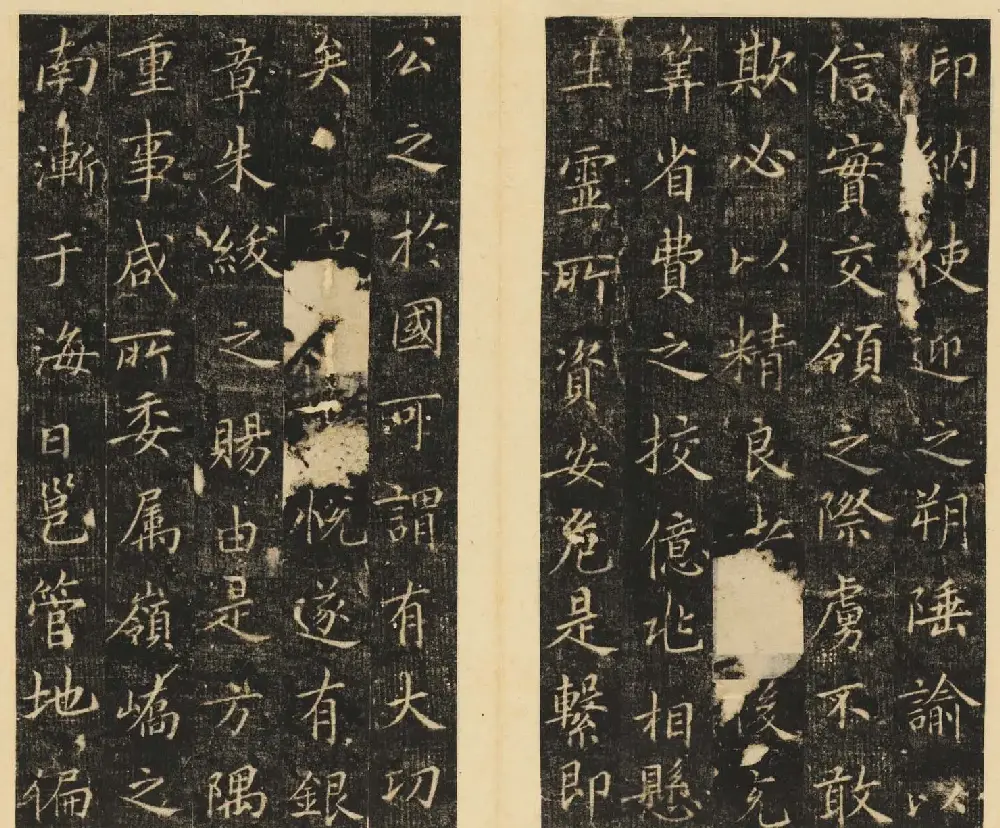 印納使迎之朔陲諭以
信實交領之際虜不敢
欺必以精良者後充
筭省費之挍億兆相懸
生靈所資安危是繫即
公之於國可謂有大功
矣悅遂有銀
章朱綬之賜由是方隅
重事咸所委属嶺嶠之
南漸于海日邕管地偏